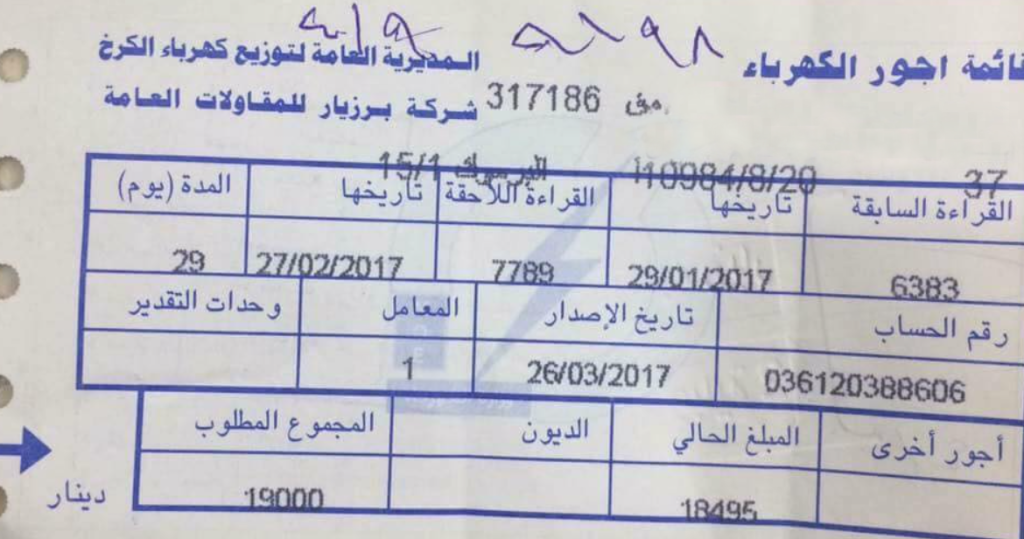 قائمة اجور الكهرباء
المديرية العامة لتوزيع كهرباء الكرخ
مق 317186 شركة برزيار للمقاولات العامة
37 110984/8/20 اليرموك 15/1
القراءة السابقة تاريخها القراءة اللاحقة تاريخها المدة (يوم)
6383 29/01/2017 7789 27/02/2017 29
رقم الحساب تاريخ الإصدار المعامل وحدات التقدير
036120388606 26/03/2017 1
أجور أخرى المبلغ الحالي الديون المجموع المطلوب
18495 19000 دينار